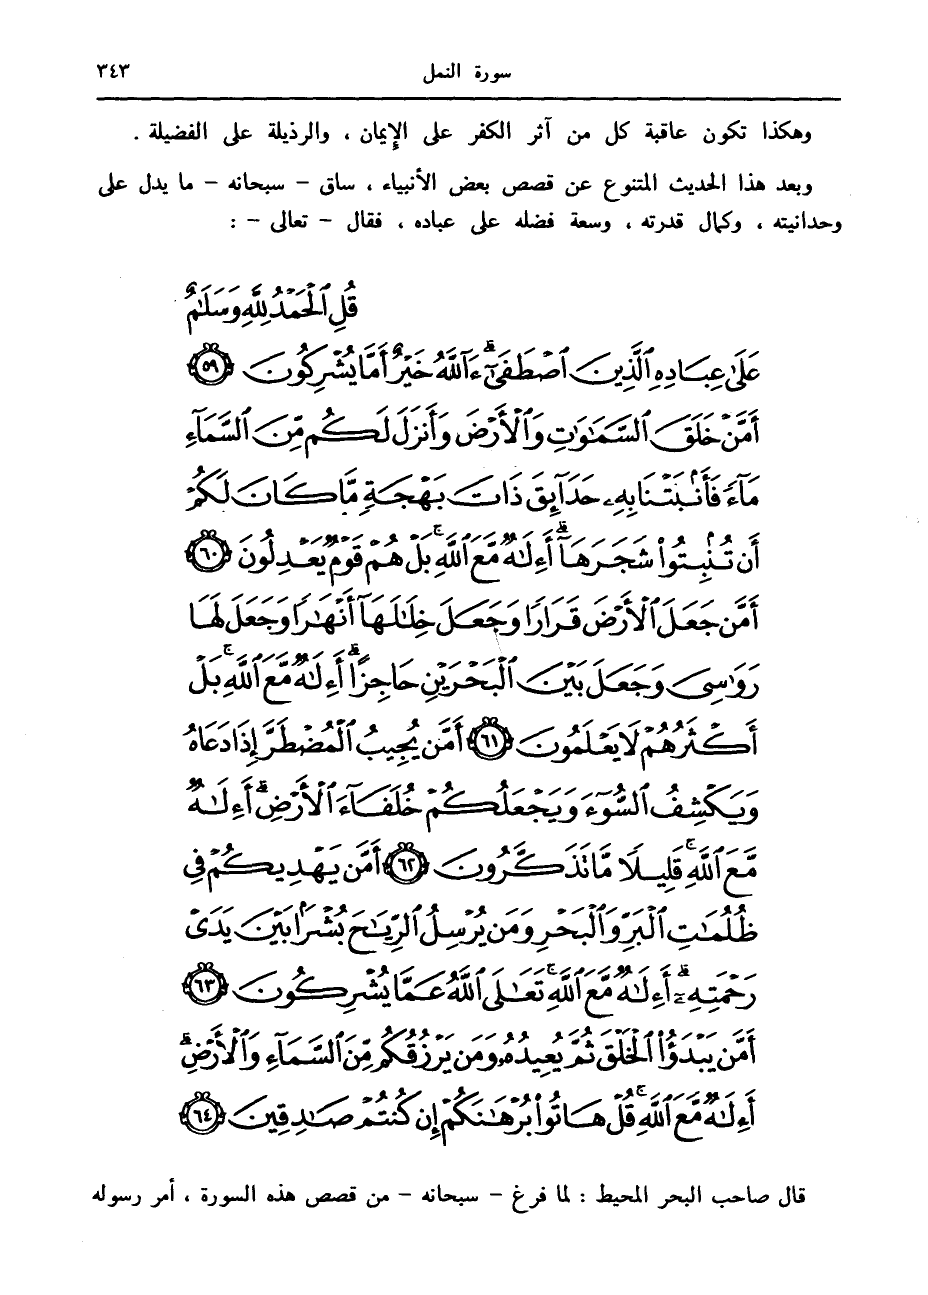 سورة النمل ٣٤٣
وهكذا تكون عاقبة كل من آثر الكفر على الإيمان ، والرذيلة على الفضيلة .
وبعد هذا الحديث المتنوع عن قصص بعض الأنبياء ، ساق – سبحانه – ما يدل على
وحدانيته ، وكمال قدرته ، وسعة فضله على عباده ، فقال – تعالى – :
قُلِ ٱلْحَمْدُ لِلَّهِ وَسَلَـٰمٌ
عَلَىٰ عِبَادِهِ ٱلَّذِينَ ٱصْطَفَىٰٓ ۗ ءَآللَّهُ خَيْرٌ أَمَّا يُشْرِكُونَ ٥٩
أَمَّنْ خَلَقَ ٱلسَّمَـٰوَٰتِ وَٱلْأَرْضَ وَأَنزَلَ لَكُم مِّنَ ٱلسَّمَآءِ
مَآءً فَأَنۢبَتْنَا بِهِۦ حَدَآئِقَ ذَاتَ بَهْجَةٍ مَّا كَانَ لَكُمْ
أَن تُنۢبِتُوا۟ شَجَرَهَآ ۗ أَءِلَـٰهٌ مَّعَ ٱللَّهِ ۚ بَلْ هُمْ قَوْمٌ يَعْدِلُونَ ٦٠
أَمَّن جَعَلَ ٱلْأَرْضَ قَرَارًا وَجَعَلَ خِلَـٰلَهَآ أَنْهَـٰرًا وَجَعَلَ لَهَا
رَوَٰسِىَ وَجَعَلَ بَيْنَ ٱلْبَحْرَيْنِ حَاجِزًا ۗ أَءِلَـٰهٌ مَّعَ ٱللَّهِ ۚ بَلْ
أَكْثَرُهُمْ لَا يَعْلَمُونَ ٦١ أَمَّن يُجِيبُ ٱلْمُضْطَرَّ إِذَا دَعَاهُ
وَيَكْشِفُ ٱلسُّوٓءَ وَيَجْعَلُكُمْ خُلَفَآءَ ٱلْأَرْضِ ۗ أَءِلَـٰهٌ
مَّعَ ٱللَّهِ ۚ قَلِيلًا مَّا تَذَكَّرُونَ ٦٢ أَمَّن يَهْدِيكُمْ فِى
ظُلُمَـٰتِ ٱلْبَرِّ وَٱلْبَحْرِ وَمَن يُرْسِلُ ٱلرِّيَـٰحَ بُشْرًۢا بَيْنَ يَدَىْ
رَحْمَتِهِۦٓ ۗ أَءِلَـٰهٌ مَّعَ ٱللَّهِ ۚ تَعَـٰلَى ٱللَّهُ عَمَّا يُشْرِكُونَ ٦٣
أَمَّن يَبْدَؤُا۟ ٱلْخَلْقَ ثُمَّ يُعِيدُهُۥ وَمَن يَرْزُقُكُم مِّنَ ٱلسَّمَآءِ وَٱلْأَرْضِ ۗ
أَءِلَـٰهٌ مَّعَ ٱللَّهِ ۚ قُلْ هَاتُوا۟ بُرْهَـٰنَكُمْ إِن كُنتُمْ صَـٰدِقِينَ ٦٤
قال صاحب البحر المحيط : لما فرغ – سبحانه – من قصص هذه السورة ، أمر رسوله